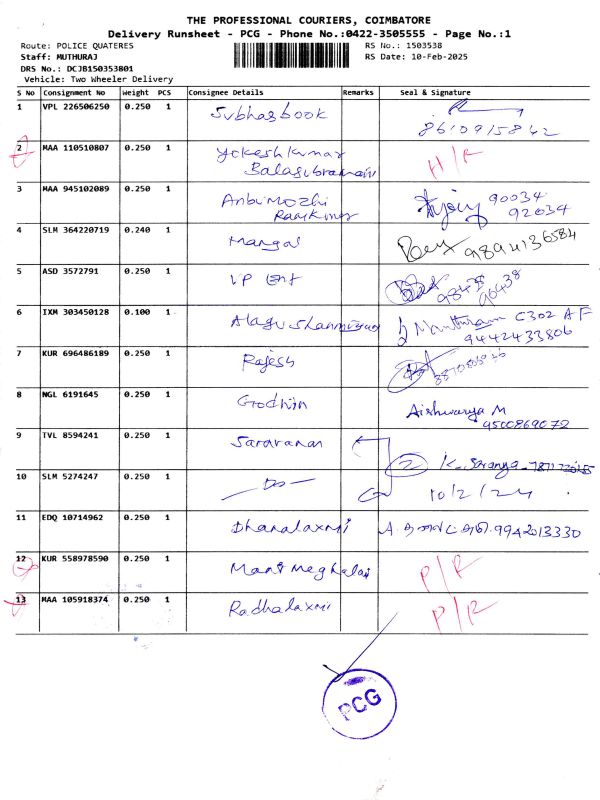 THE PROFESSIONAL COURIERS, COIMBATORE
Delivery Runsheet - PCG - Phone No.:0422-3505555 - Page No.:1
Route: POLICE QUATERES RS No.: 1503538
Staff: MUTHURAJ RS Date: 10-Feb-2025
DRS No.: DCJB150353801
Vehicle: Two Wheeler Delivery
S No Consignment No Weight PCS Consignee Details Remarks Seal & Signature
1 VPL 226506250 0.250 1 Subhasbook
8610915842
2 MAA 110510807 0.250 1 Yokeshkumar H/R
Balasubramani
3 MAA 945102089 0.250 1 Anbumozhi 90034
Ramkumar 92034
4 SLM 364220719 0.240 1 Mangal 9894136584
5 ASD 3572791 0.250 1 VP Ent 98438
96438
6 IXM 303450128 0.100 1 Alagu Shanmugam C302 AF
9442433806
7 KUR 696486189 0.250 1 Rajesh
8 NGL 6191645 0.250 1 Godwin Aishwarya M
9500869072
9 TVL 8594241 0.250 1 Saravanan
2 K. Saranya
10 SLM 5274247 0.250 1 -Do- 10/2/24
11 EDQ 10714962 0.250 1 Dhanalaxmi 9942013330
12 KUR 558978590 0.250 1 Mani meghalai P/R
13 MAA 105918374 0.250 1 Radhalaxmi P/R
PCG